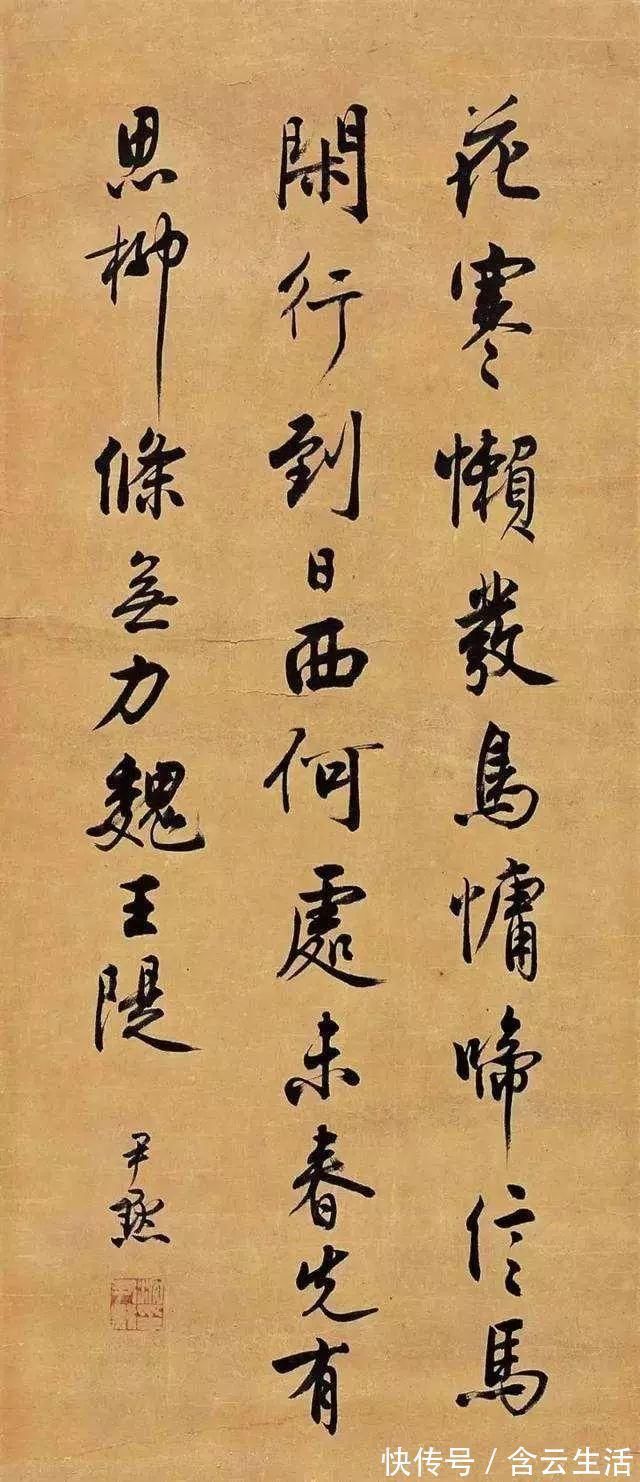 花寒懶發鳥慵啼信馬
閑行到日西何處未春先有
思柳條無力魏王隄
尹默
快传号 / 含云生活